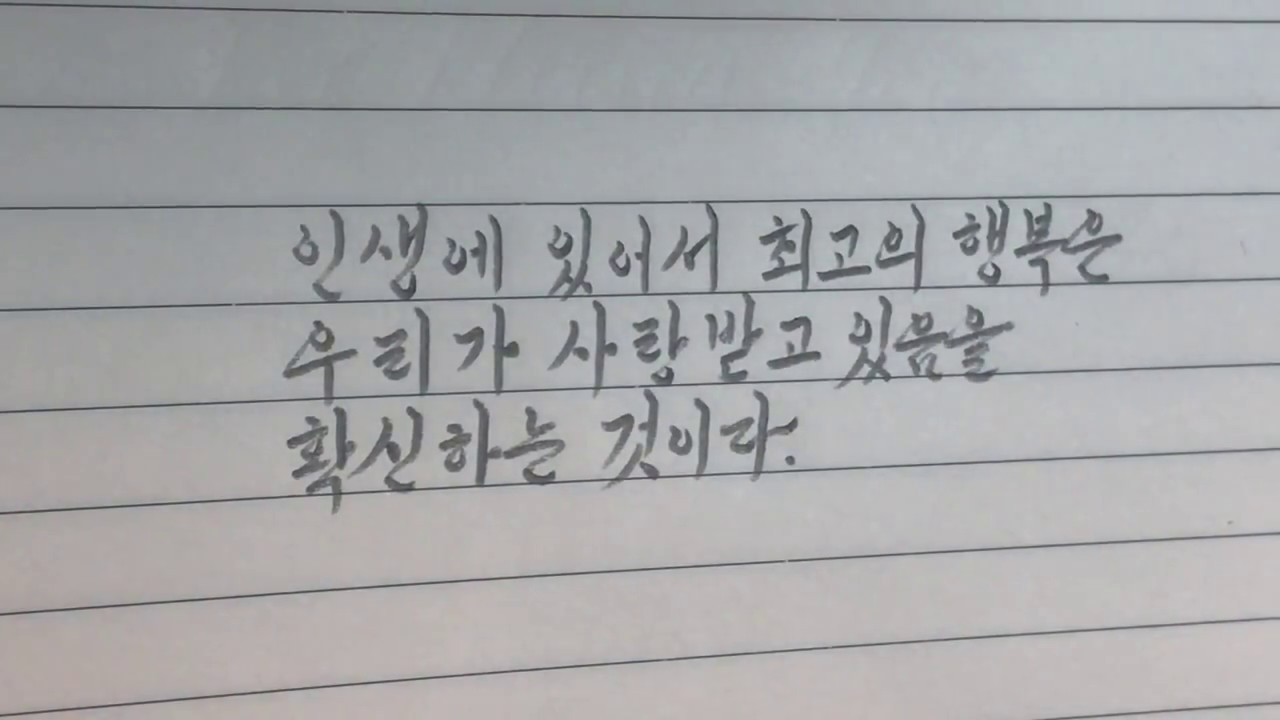 인생에 있어서 최고의 행복은
우리가 사랑받고 있음을
확신하는 것이다.